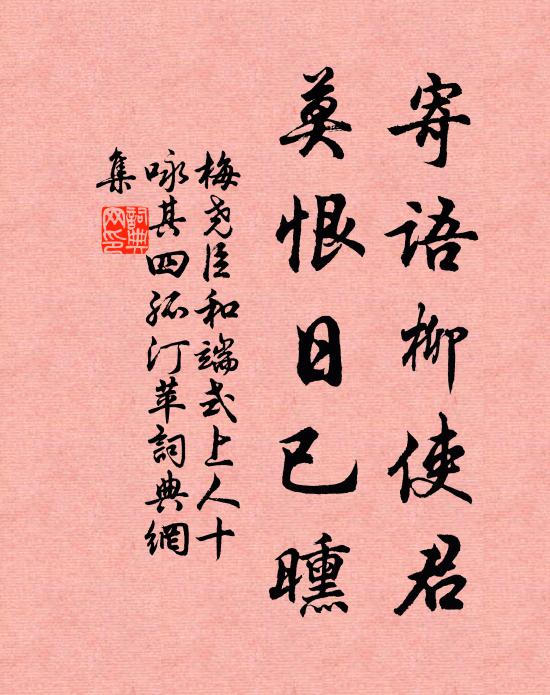 寄語柳使君
莫恨日已曛
梅堯臣和端式上人十
咏其四孤汀苹詞典網
集
詞典網印